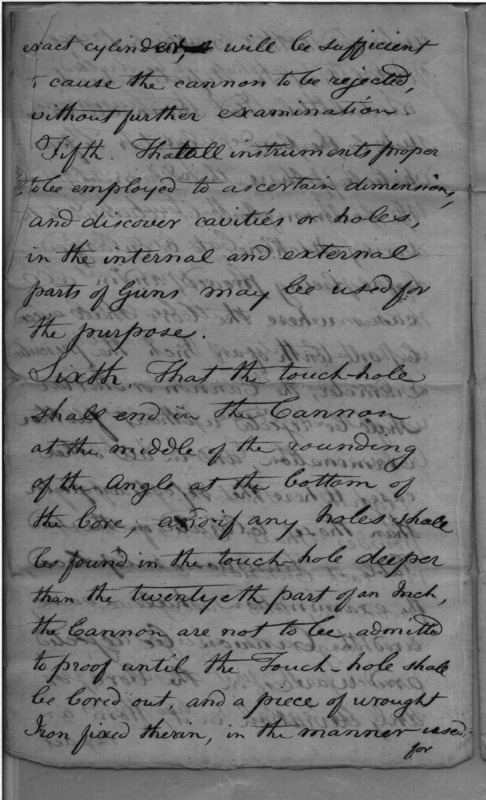 exact cylinder, will be sufficient
to cause the cannon to be rejected,
without further examination.
Fifth. That all instruments proper
to be employed to ascertain dimensions,
and discover cavities or holes,
in the internal and external
parts of Guns may be used for
the purpose.
Sixth, That the touch-hole
shall end in the Cannon
at the middle of the rounding
of the Angle at the bottom of
the bore; and if any holes shall
be found in the touch-hole deeper
than the twentyeth part of an Inch,
the Cannon are not to be admitted
to proof until the Touch-hole shall
be bored out, and a piece of wrought
Iron fixed therin, in the manner used
for